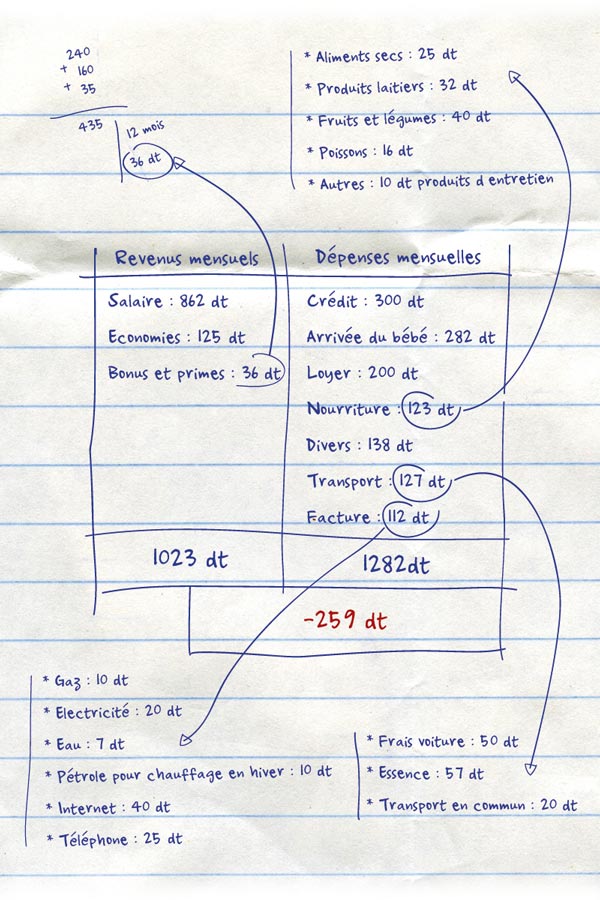 240
+ 160
+ 35
435
12 mois
36 dt
* Aliments secs : 25 dt
* Produits laitiers : 32 dt
* Fruits et légumes : 40 dt
* Poissons : 16 dt
* Autres : 10 dt produits d entretien
Revenus mensuels
Salaire : 862 dt
Economies : 125 dt
Bonus et primes : 36 dt
1023 dt
Dépenses mensuelles
Crédit : 300 dt
Arrivée du bébé : 282 dt
Loyer : 200 dt
Nourriture : 123 dt
Divers : 138 dt
Transport : 127 dt
Facture : 112 dt
1282dt
-259 dt
* Gaz : 10 dt
* Electricité : 20 dt
* Eau : 7 dt
* Pétrole pour chauffage en hiver : 10 dt
* Internet : 40 dt
* Téléphone : 25 dt
* Frais voiture : 50 dt
* Essence : 57 dt
* Transport en commun : 20 dt